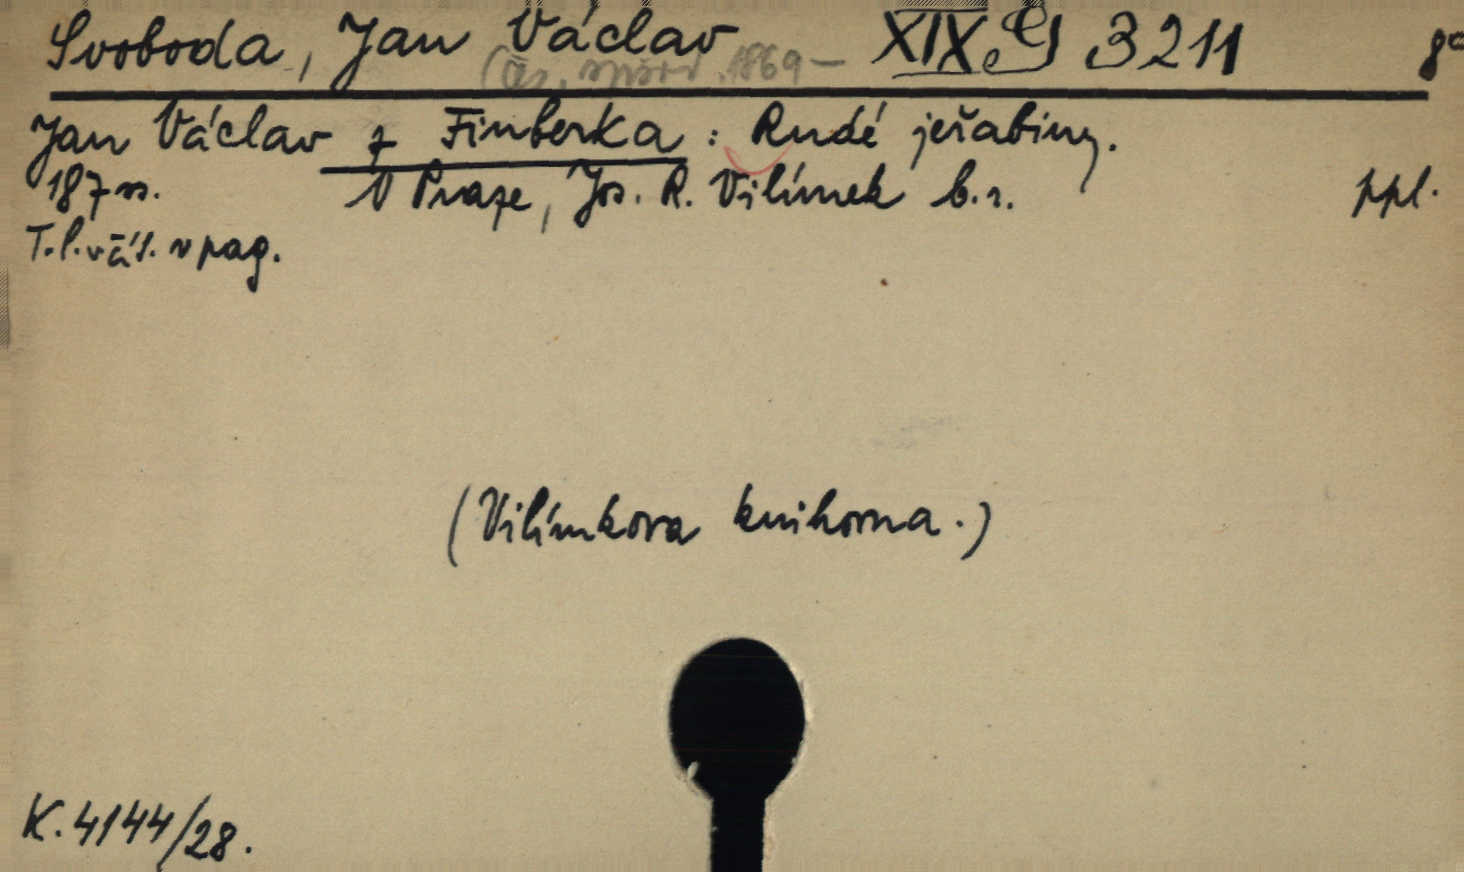 Svoboda, Jan Václav XIX G 3211 8°
(čes. spisov. 1869 –
Jan Václav z Finberka: Rudé jeřabiny.
187 s. V Praze, Jos. R. Vilímek b.r. ppl.
T.l. v čís. v pag.
(Vilímkova knihovna.)
K. 4144/28.